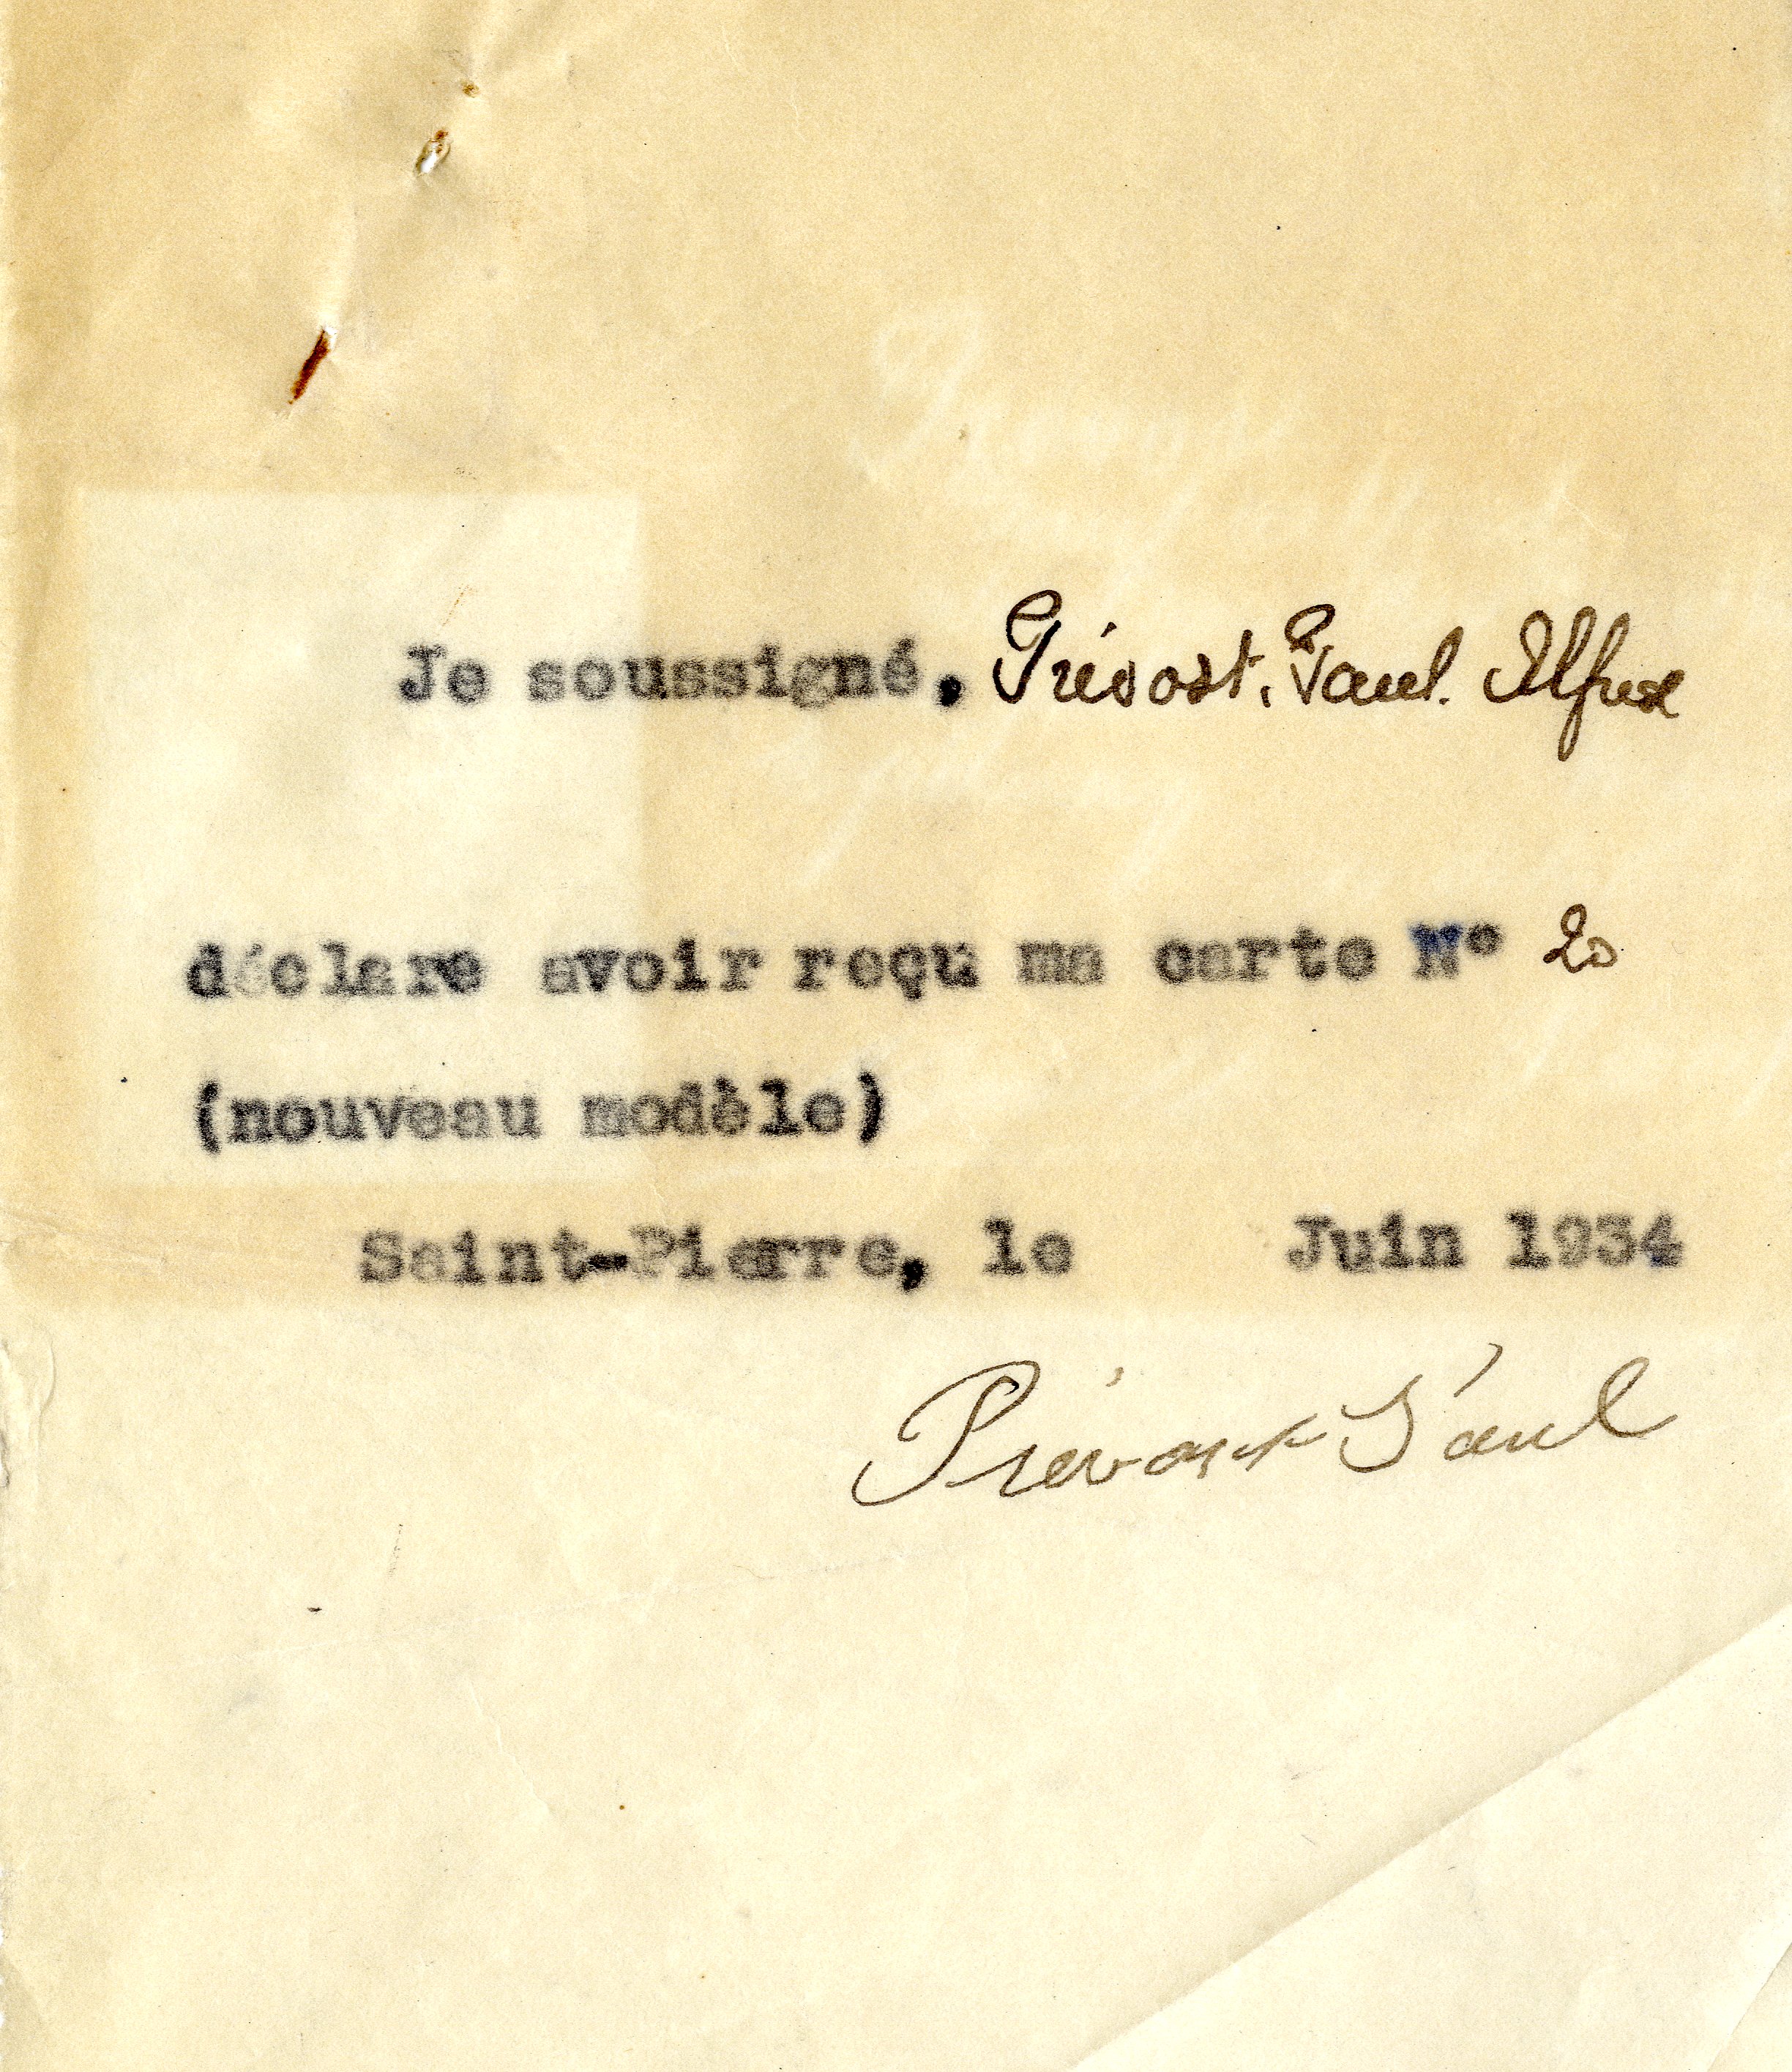 Je soussigné, Prévost. Paul. Alfred
déclare avoir reçu ma carte N° 20
(nouveau modèle)
Saint-Pierre, le Juin 1934
Prévost Paul